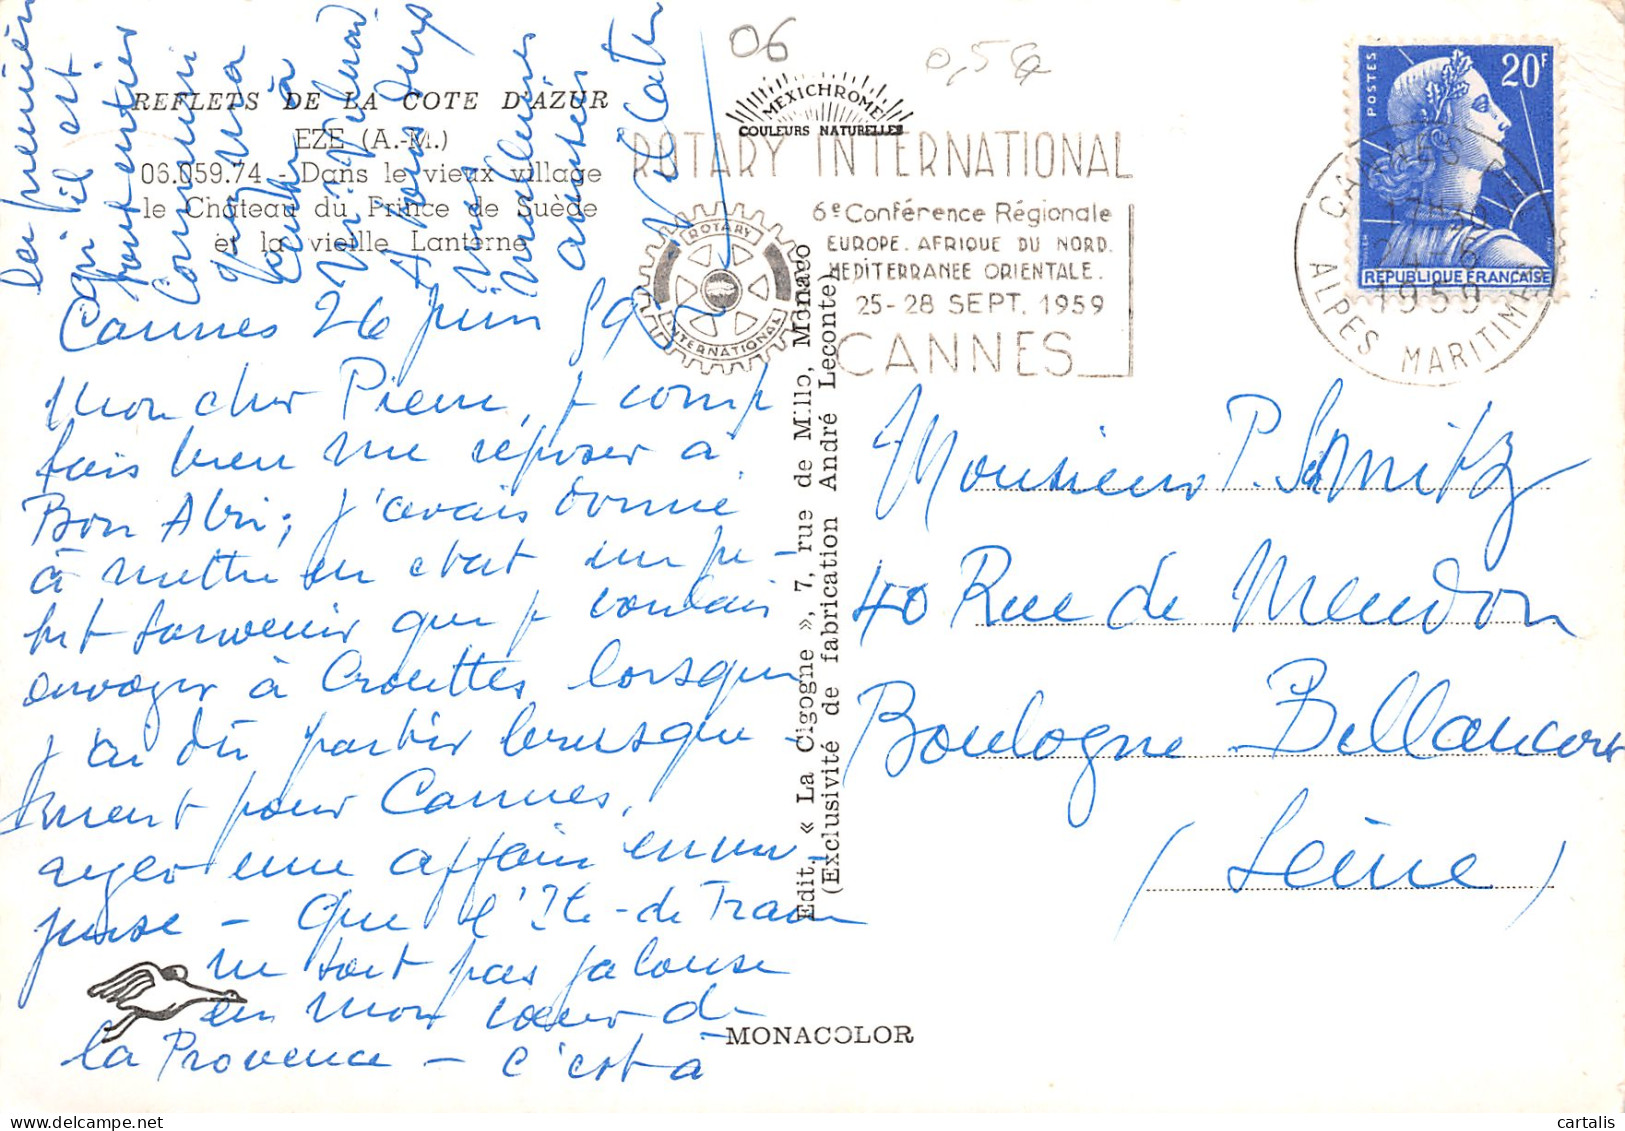 06
0,5€
REFLETS DE LA COTE D'AZUR
EZE (A.-M.)
06.059.74 - Dans le vieux village
le Château du Prince de Suède
et la vieille Lanterne
MEXICHROME
COULEURS NATURELLES
ROTARY INTERNATIONAL
6e Conférence Régionale
EUROPE. AFRIQUE DU NORD.
MEDITERRANEE ORIENTALE.
25-28 SEPT. 1959
CANNES
ROTARY
INTERNATIONAL
POSTES
20F
REPUBLIQUE FRANÇAISE
CANNES
17H30
24-6
1959
ALPES MARITIMES
Cannes 26 juin 59
Mon cher Pierre, je comp
tais bien me reposer à
Bon Abri; j'avais donné
à mettre en état un pe-
tit souvenir que je voulais
envoyer à Crouttes lorsque
j'ai dû partir brusque-
ment pour Cannes,
une affaire
- Que l'Ile-de-France
ne soit pas jalouse
en mon cœur de
la Provence - c'est à
la première
qu'il est
tout entier
qui
à
Edit. « La Cigogne », 7, rue de Millo, Monaco
(Exclusivité de fabrication André Leconte)
Monsieur P. Schmitz
40 Rue de Meudon
Boulogne-Billancourt
(Seine)
MONACOLOR
cartalis